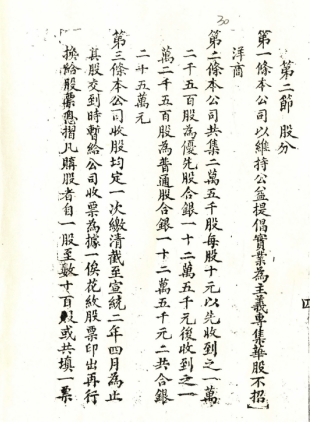 30
第二節　股分
第一條本公司以維持公益提倡實業為主義專集華股不招
洋商
第二條本公司共集二萬五千股每股十元以先收到之一萬
二千五百股為優先股合銀一十二萬五千元後收到之一
萬二千五百股為普通股合銀一十二萬五千元二共合銀
二十五萬元
第三條本公司收股均定一次繳清截至宣統二年四月為止
其股交到時暫給公司收票為據一俟花紋股票印出再行
換給股票息摺凡購股者自一股至數十百股或共填一票
四